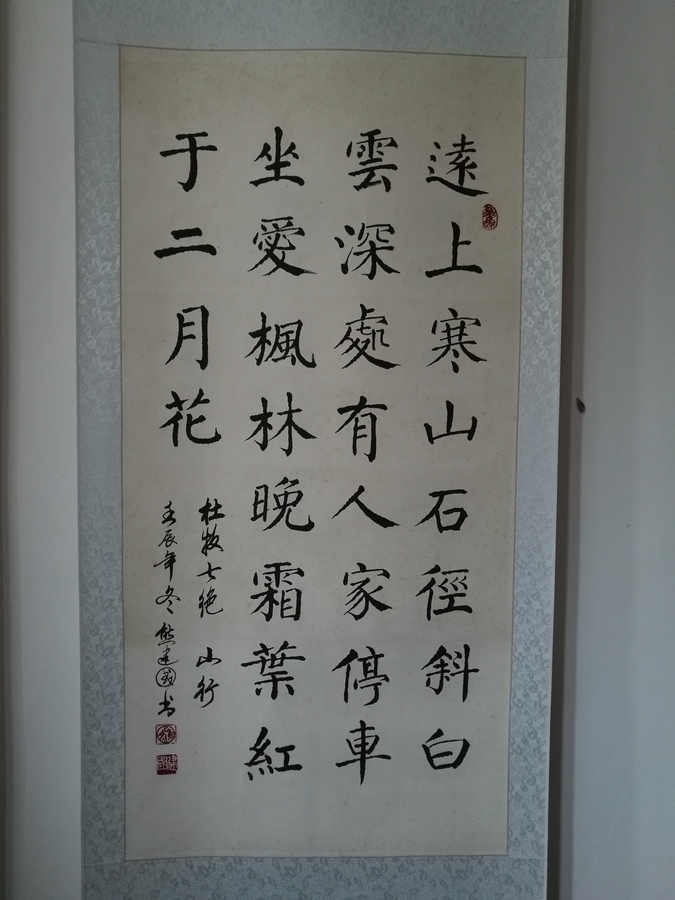 遠上寒山石徑斜白
雲深處有人家停車
坐愛楓林晚霜葉紅
于二月花
杜牧七绝 山行
壬辰年冬 熊建國书